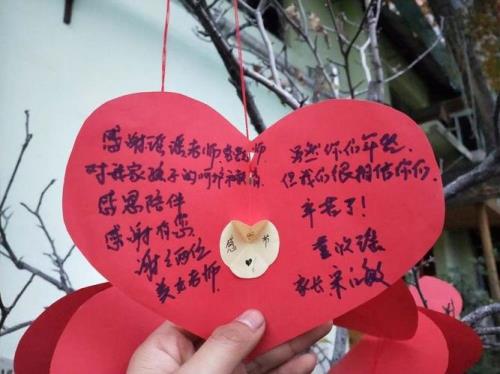 感谢瑶瑶老师
对我家孩子的呵护和
感恩陪伴
感谢有您
谢谢两位
美女老师
虽然你们年轻
但我们很相信你们
辛苦了！
家长
感恩节